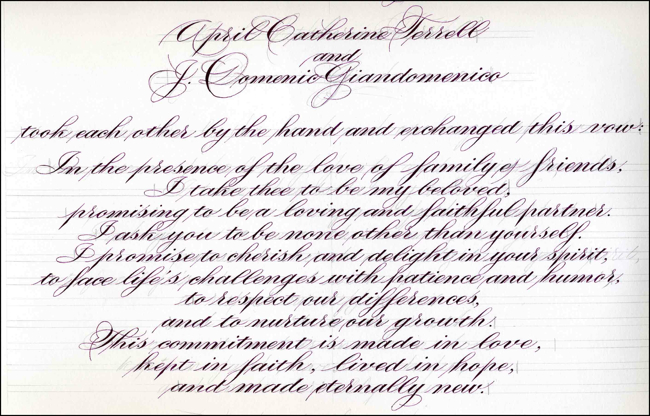 April Catherine Terrell
and
J. Domenic Giandomenico
took each other by the hand and exchanged this vow:
In the presence of the love of family & friends,
I take thee to be my beloved,
promising to be a loving and faithful partner.
I ask you to be none other than yourself.
I promise to cherish and delight in your spirit,
to face life's challenges with patience and humor,
to respect our differences,
and to nurture our growth.
This commitment is made in love,
kept in faith, lived in hope,
and made eternally new.